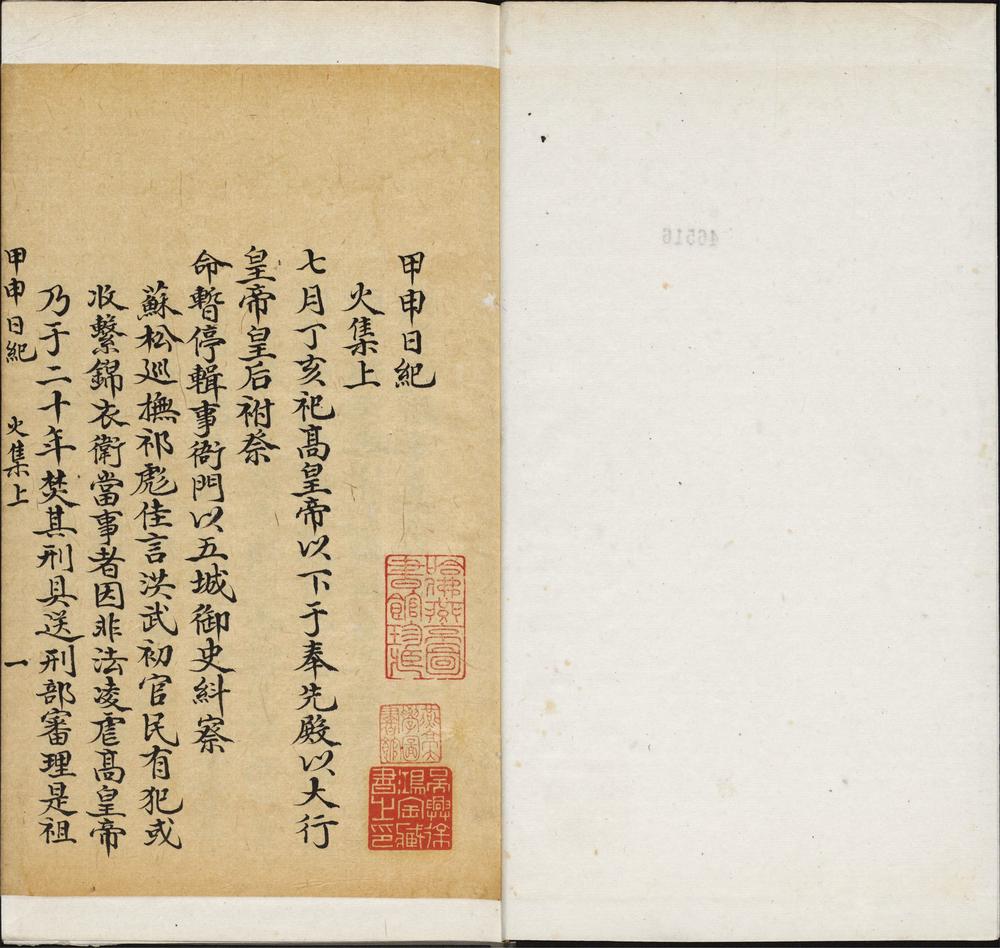 甲申日紀
火集上
七月丁亥祀髙皇帝以下于奉先殿以大行
皇帝皇后祔祭
命暫停輯事衙門以五城御史糾察
蘇松廵撫祁彪佳言洪武初官民有犯或
收繫錦衣衛當事者因非法凌虐髙皇帝
乃于二十年焚其刑具送刑部審理是祖
甲申日紀 火集上 一
哈佛燕京圖書館珍藏
燕京大學圖書館
吳興徐鴻寶藏書之印
46516